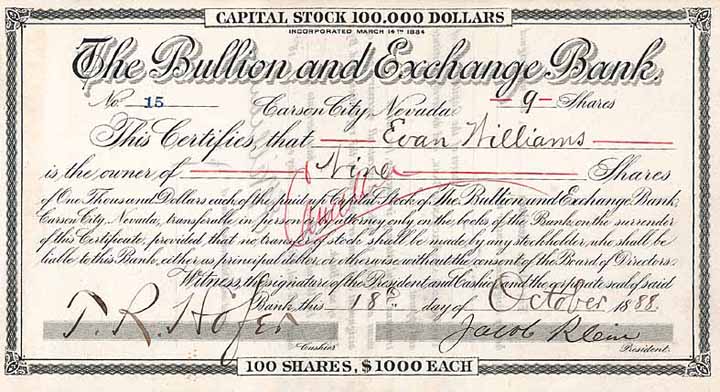 CAPITAL STOCK 100.000 DOLLARS
INCORPORATED MARCH 14TH 1884
The Bullion and Exchange Bank.
No. 15 Carson City, Nevada - 9 - Shares
This Certifies, that Evan Williams
is the owner of Nine Shares
of One Thousand Dollars each of the paid up Capital Stock of The Bullion and Exchange Bank,
Carson City, Nevada, transferable in person or by attorney only on the books of the Bank, on the surrender
of this Certificate, provided that no transfer of stock shall be made by any stockholder, who shall be
liable to this Bank, either as principal debtor, or otherwise without the consent of the Board of Directors.
Witness, the signature of the President and Cashier and the corporate seal of said
Bank this 18th day of October 1888.
T. R. Hofer Jacob Klein
Cashier President.
100 SHARES, $1000 EACH